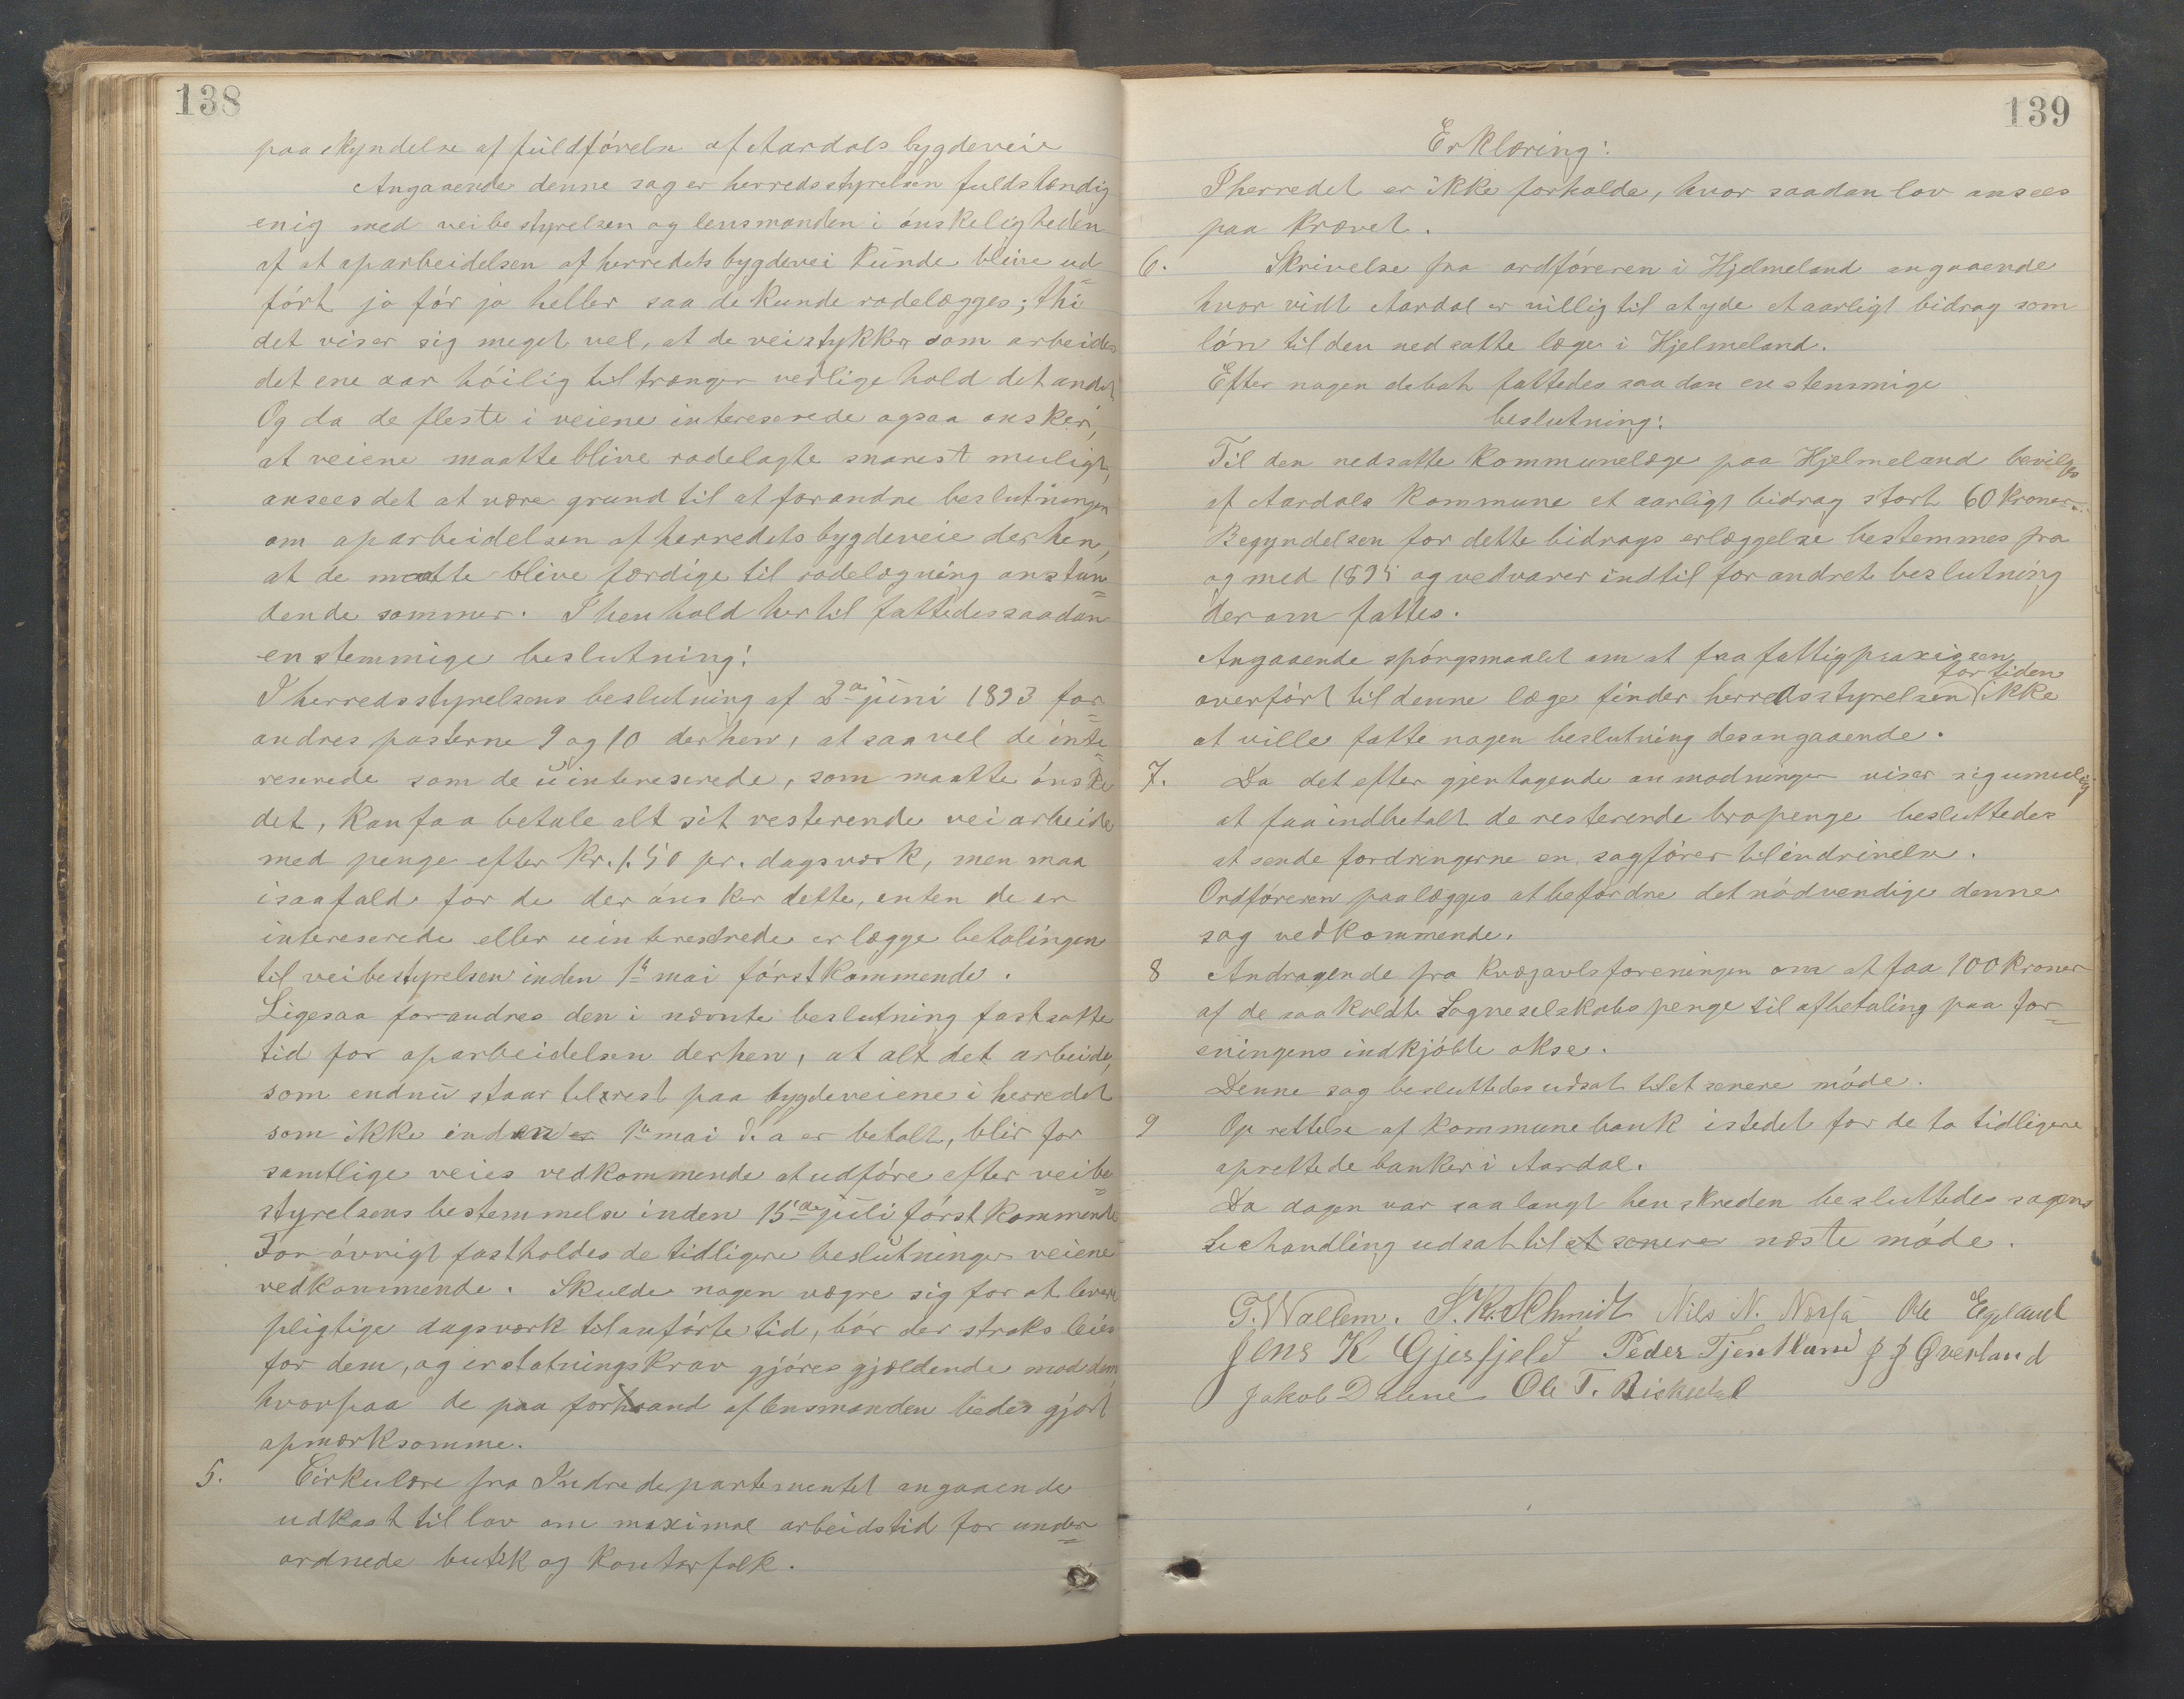 138
paaskyndelse af fuldførelse af Aardals bygdeveie
Angaaende denne sag er herredsstyrelsen fuldstændig
enig med veibestyrelsen og lensmanden i ónskeligheden
af at oparbeidelsen af herredets bygdevei kunde blive ud=
fórt jo fór jo heller saa de kunde rodelægges; thi
det viser sig meget vel, at de veistykker som arbeides
det ene aar hóilig tiltrænger vedligehold det andet
Og da de fleste i veiene intereserede ogsaa ónsker,
at veiene maatte blive rodelagte snarest muligt,
ansees det at være grund til at forandre beslutningen
om oparbeidelsen af herredets bygdeveie derhen,
at de maatte blive færdige til rodelægning anstun=
dende sommer. I henhold hertil fattedes saadan
enstemmige beslutning:
I herredsstyrelsens beslutning af 2den juni 1893 for=
andres posterne 9 og 10 derhen, at saavel de inte=
reserede som de uintereserede, som maatte ónske
det, kan faa betale alt sit resterende veiarbeide
med penge efter kr. 1.50 pr. dagsværk, men maa
isaafald for de der ónsker dette, enten de er
intereserede eller uintereserede erlægge betalingen
til veibestyrelsen inden 1ste mai fórstkommende.
Ligesaa forandres den i nævnte beslutning fastsatte
tid for oparbeidelsen derhen, at alt det arbeide,
som endnu staar tilrest paa bygdeveiene i herredet
som ikke inden 1ste mai d. a er betalt, blir for
samtlige veies vedkommende at udfóre efter veibe=
styrelsens bestemmelse inden 15de juli fórstkommende
For óvrigt fastholdes de tidligere beslutninger veiene
vedkommende. Skulde nogen vægre sig for at levere
pligtige dagsværk til anfórte tid, bór der straks leies
for dem, og erstatningskrav gjóres gjældende mod dem
hvorpaa de paa forhaand af lensmanden bedes gjort
opmærksomme.
5. Cirkulære fra Indredepartementet angaaende
udkast til lov om maximal arbeidstid for under=
ordnede butik og kontorfolk.
139
Erklæring:
I herredet er ikke forholde, hvor saadan lov ansees
paa krævet.
6. Skrivelse fra ordfóreren i Hjelmeland angaaende
hvor vidt Aardal er villig til at yde et aarligt bidrag som
lón til den nedsatte læge i Hjelmeland.
Efter nogen debat fattedes saadan enstemmige
beslutning:
Til den nedsatte kommunelæge paa Hjelmeland bevilges
af Aardals kommune et aarligt bidrag stort 60 kroner.
Begyndelsen for dette bidrags erlæggelse bestemmes fra
og med 1895 og vedvarer indtil forandret beslutning
derom fattes.
Angaaende spórgsmaalet om at faa fattigpraxigsen
overfórt til denne læge finder herredsstyrelsen for tiden ikke
at ville fatte nogen beslutning desangaaende.
7. Da det efter gjentagende anmodninger viser sig umulig
at faa indbetalt de resterende bropenge besluttedes
at sende fordringerne en sagfórer til inddrivelse.
Ordfóreren paalægges at befordre det nódvendige denne
sag vedkommende.
8 Andragende fra Kvægavlsforeningen om at faa 100 kroner
af de saakaldte Sogneselskabs penge til afbetaling paa for=
eningens indkjóbte okse.
Denne sag besluttedes udsat til et senere móde.
9 Oprettelse af kommunebank istedet for de to tidligere
oprettede banker i Aardal.
Da dagen var saa langt henskreden besluttedes sagens
behandling udsat til et senere næste móde.
G. Wallem. S. K. Schmidt Nils N. Næsså Ole Egeland
Jens K Gjesfjeld Peder Tjentland J J Øverland
Jakob Dalene Ole T. Riskedal